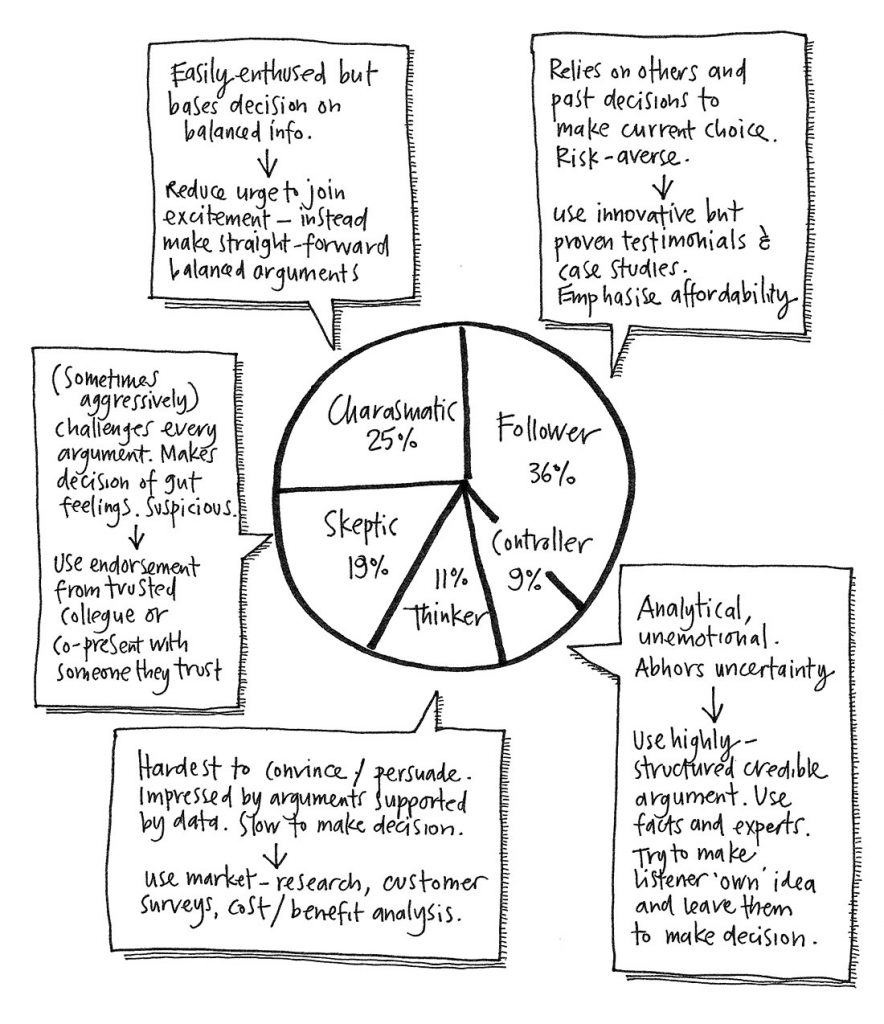 Easily enthused but
bases decision on
balanced info.
Reduce urge to join
excitement – instead
make straight-forward
balanced arguments
Relies on others and
past decisions to
make current choice.
Risk-averse.
use innovative but
proven testimonials &
case studies.
Emphasise affordability
(Sometimes
aggressively)
challenges every
argument. Makes
decision of gut
feelings. Suspicious.
Use endorsement
from trusted
collegue or
co-present with
someone they trust
Charasmatic
25%
Follower
36%
Skeptic
19%
11%
Thinker
Controller
9%
Analytical,
unemotional.
Abhors uncertainty
Use highly-
structured credible
argument. Use
facts and experts.
Try to make
listener 'own' idea
and leave them
to make decision.
Hardest to convince / persuade.
Impressed by arguments supported
by data. Slow to make decision.
use market-research, customer
surveys, cost/benefit analysis.